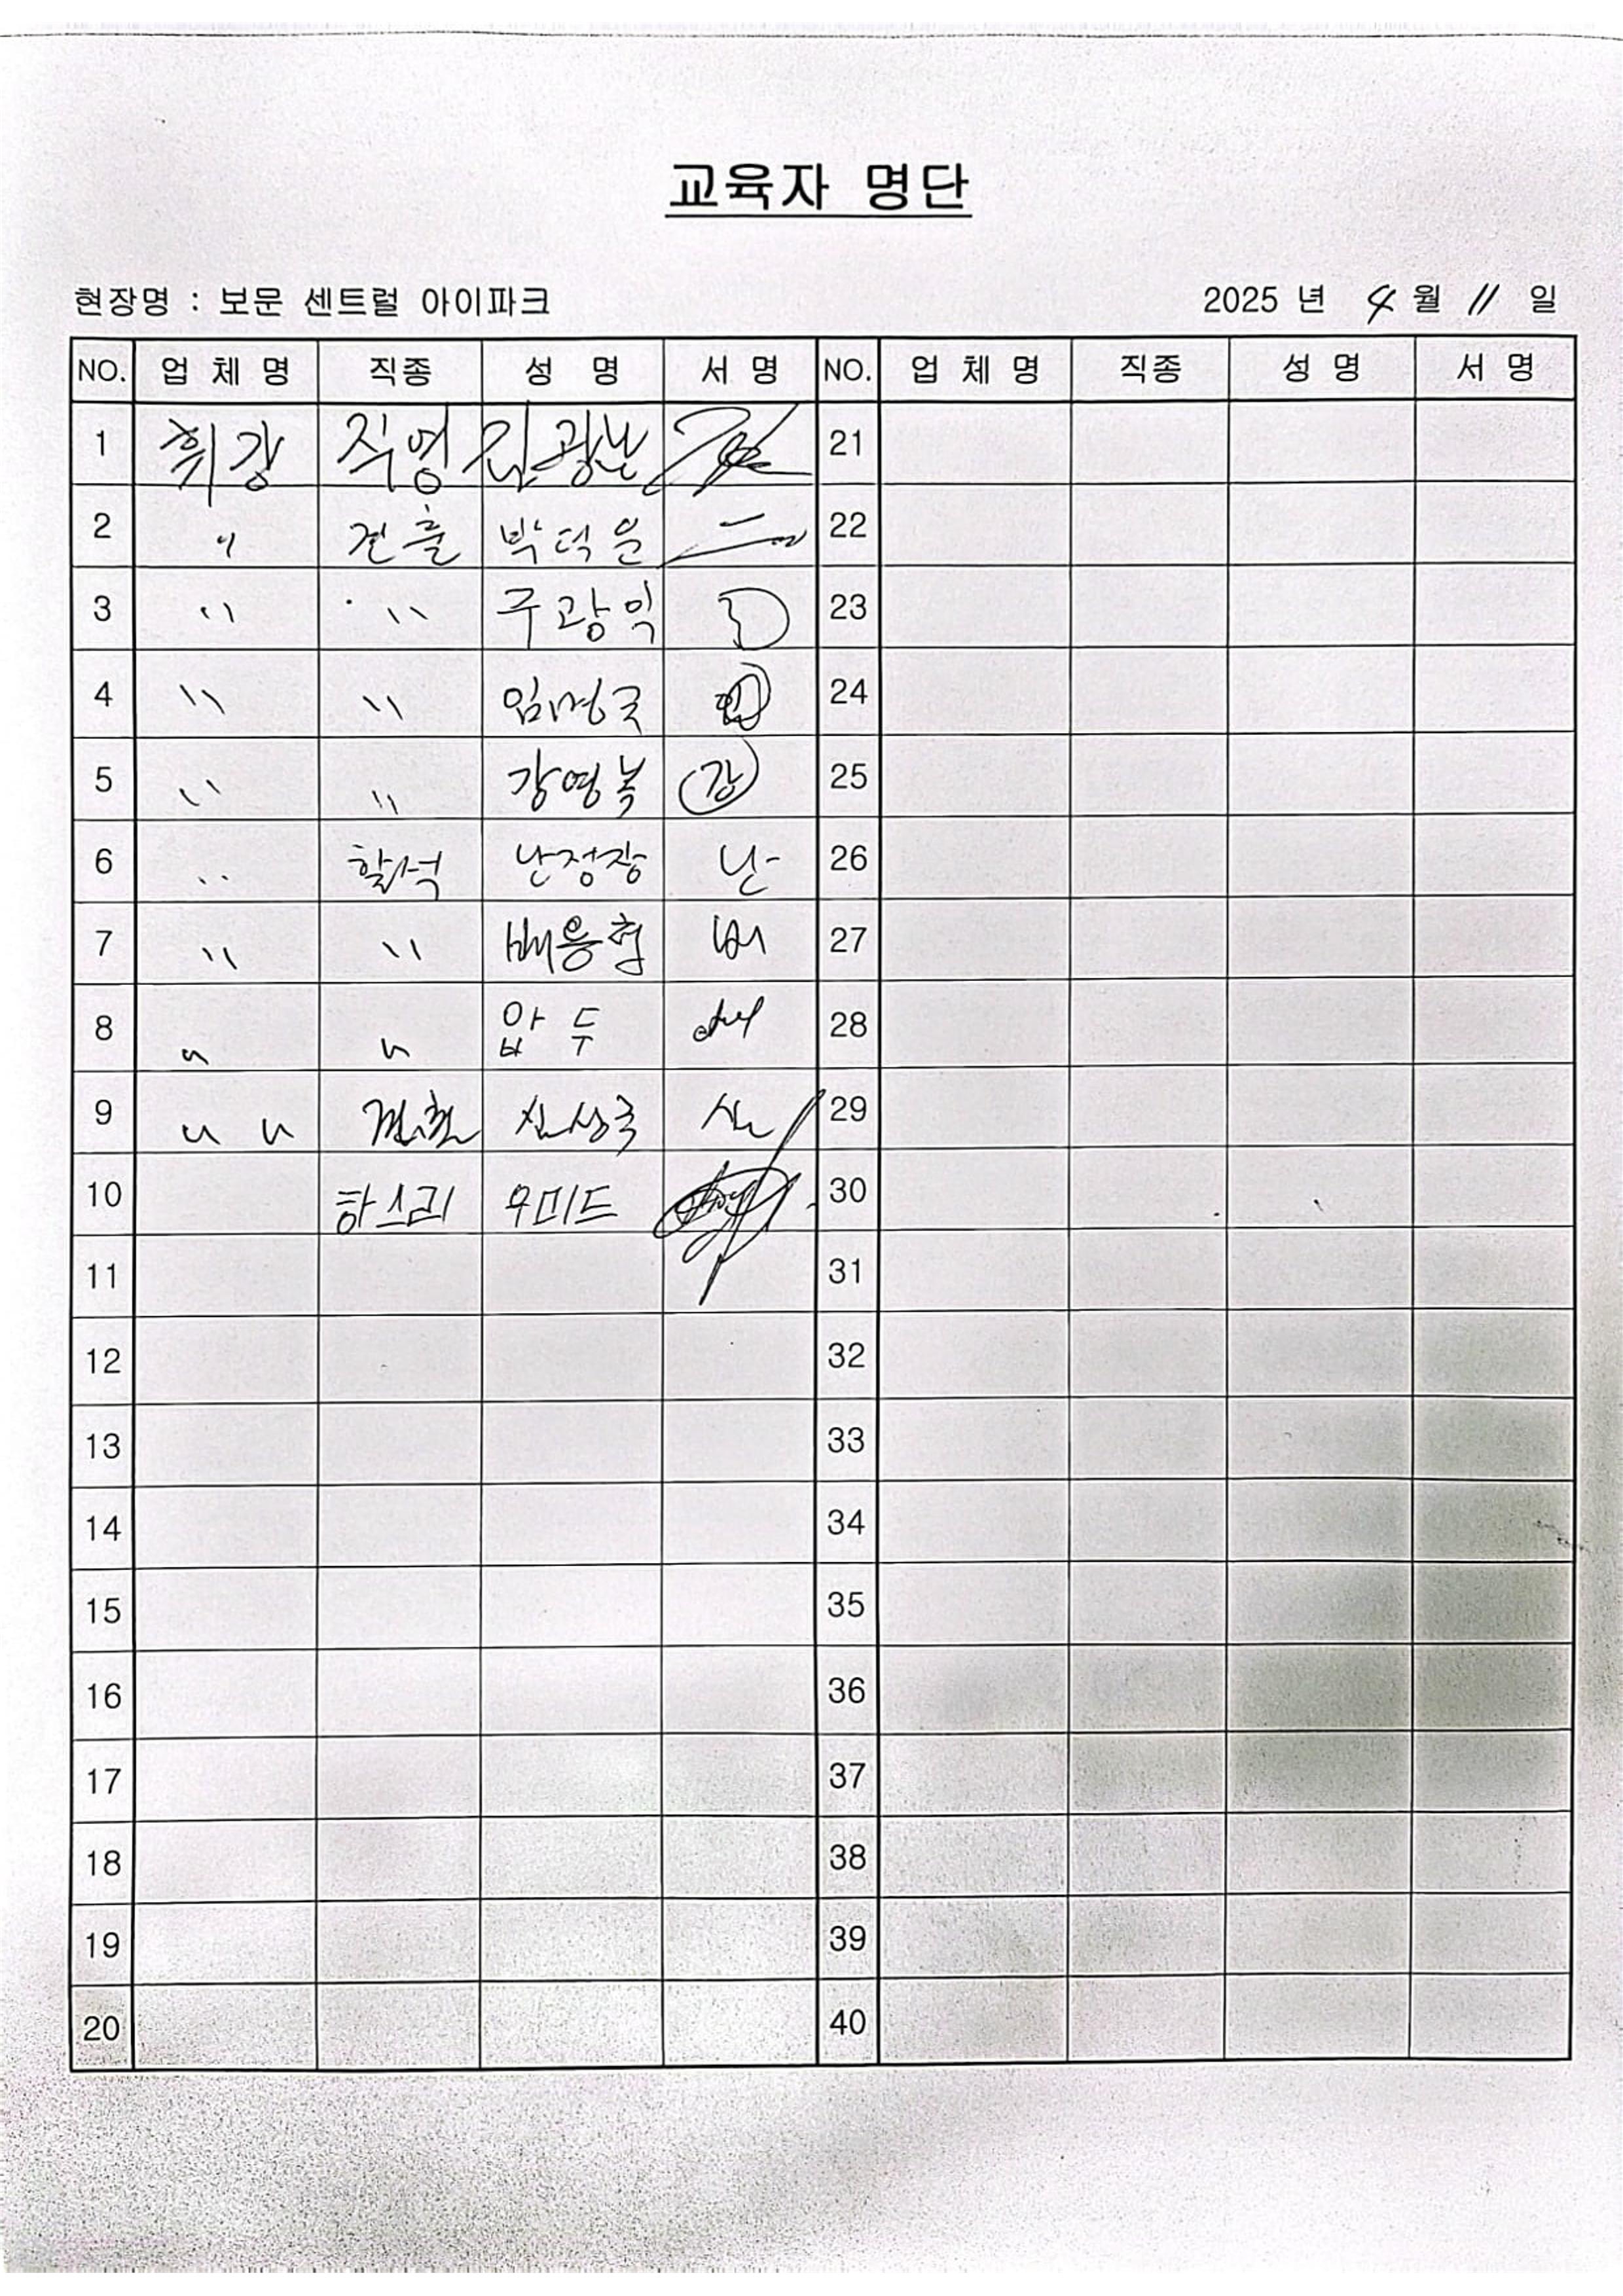 교육자 명단
현장명 : 보문 센트럴 아이파크 2025 년 4 월 11 일
NO. 업 체 명 직종 성 명 서 명 NO. 업 체 명 직종 성 명 서 명
1 휘강 직영 김광남 21
2 〃 견출 박덕운 22
3 〃 〃 주광익 23
4 〃 〃 임명국 24
5 〃 〃 강영복 강 25
6 〃 할석 난정장 난 26
7 〃 〃 배용협 배 27
8 〃 〃 압두 28
9 〃 〃 견출 신성국 신 29
10 하스리 우미드 30
11 31
12 32
13 33
14 34
15 35
16 36
17 37
18 38
19 39
20 40